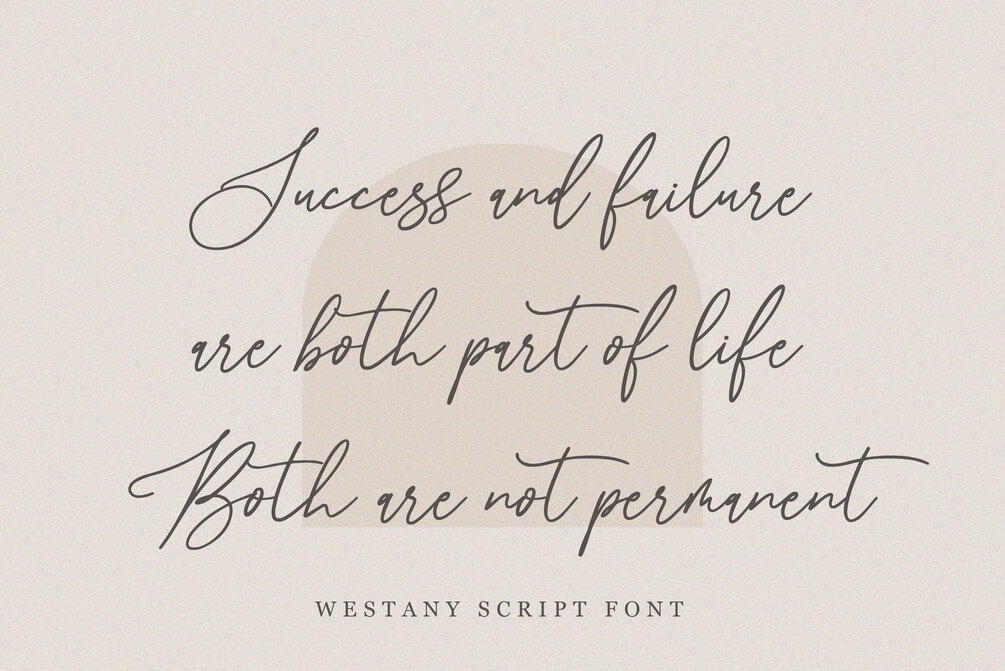 Success and failure
are both part of life
Both are not permanent
WESTANY SCRIPT FONT